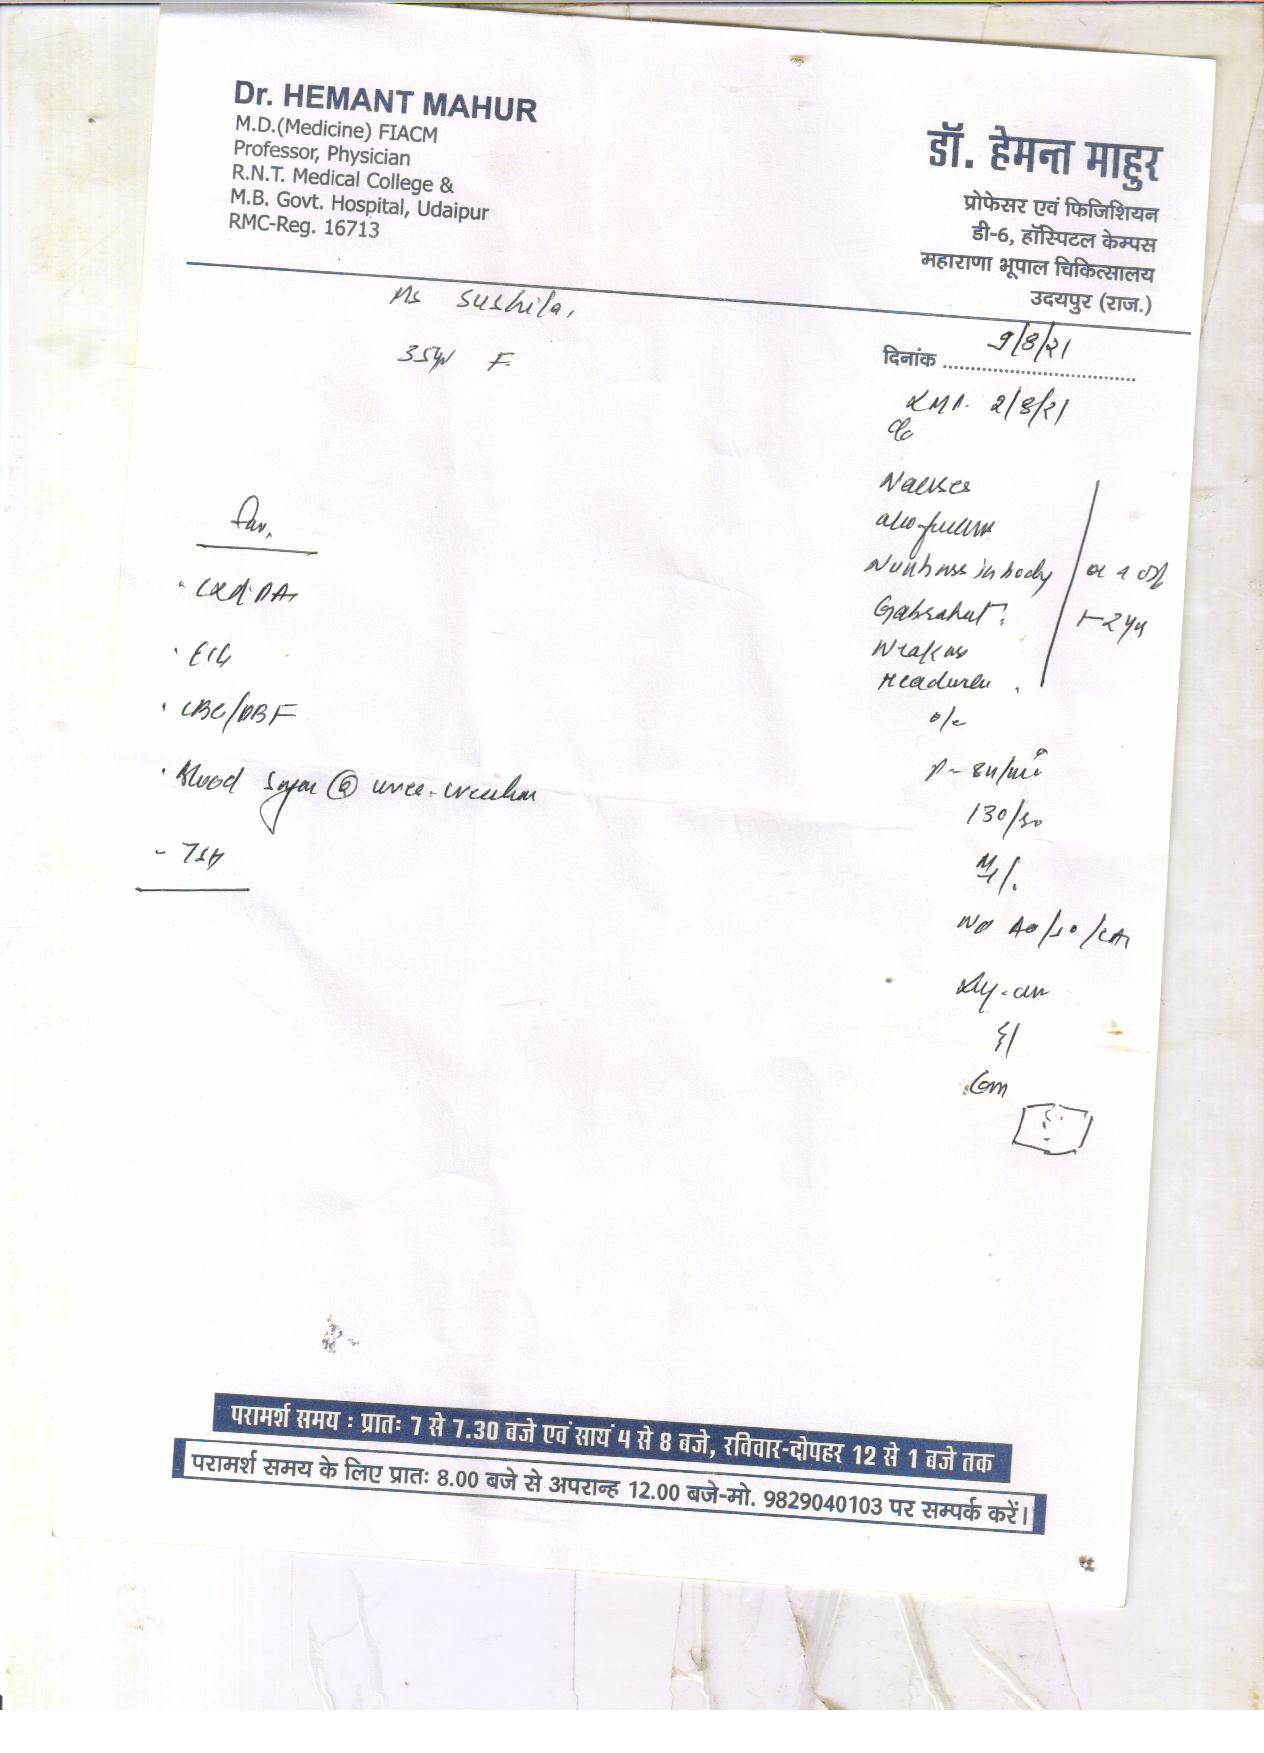 Dr. HEMANT MAHUR
M.D.(Medicine) FIACM
Professor, Physician
R.N.T. Medical College &
M.B. Govt. Hospital, Udaipur
RMC-Reg. 16713
डॉ. हेमन्त माहुर
प्रोफेसर एवं फिजिशियन
डी-6, हॉस्पिटल केम्पस
महाराणा भूपाल चिकित्सालय
उदयपुर (राज.)
Ms Sushila,
35yr F.
दिनांक 9/8/21
LMP. 2/8/21
c/o
Nausea
Numbness in body
Gabrahat
Weakness
Headache
1-2 yr
o/e
P - 84/min
130/80
Inv.
CXR. PA
ECG
CBC/PBF
Blood Sugar urea. creatinine
- TSH
परामर्श समय : प्रातः 7 से 7.30 बजे एवं सायं 4 से 8 बजे, रविवार-दोपहर 12 से 1 बजे तक
परामर्श समय के लिए प्रातः 8.00 बजे से अपरान्ह 12.00 बजे-मो. 9829040103 पर सम्पर्क करें।